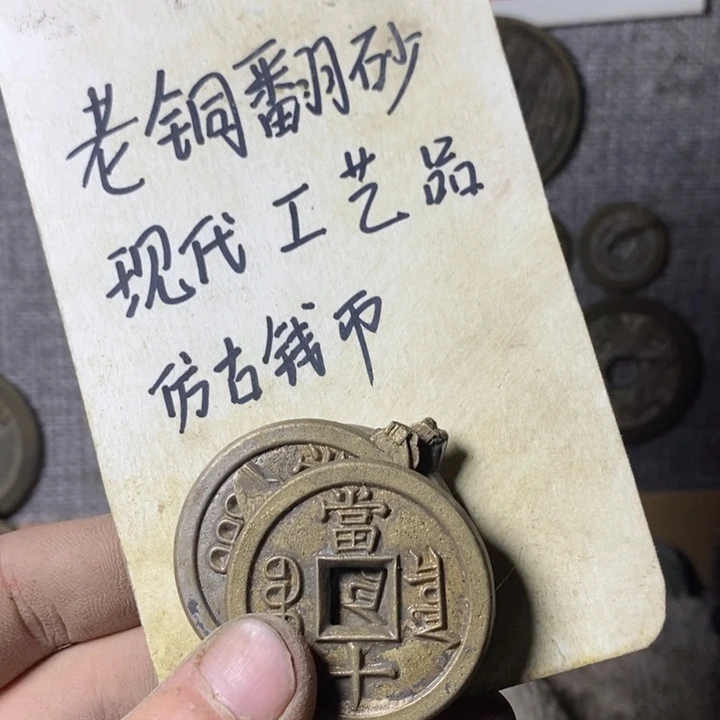 老铜翻砂
现代工艺品
仿古钱币
當
十